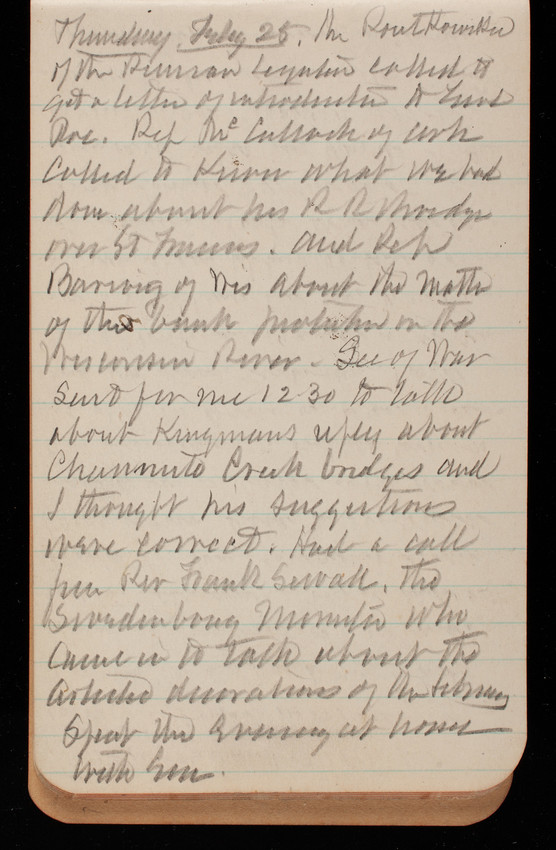 Thursday, Feby 25. Mr Routkowsky
of the Russian Legation called to
get a letter of introduction to
Poe. Rep McCulloch of Ark
called to know what we had
done about his R R bridge
over St Francis. and Rep
Barwig of Wis about the matter
of the bank protection on the
Wisconsin River. Sec of War
sent for me 12 30 to talk
about Kingmans reply about
Creek bridges and
I thought his suggestions
were correct. Had a call
from Rev Frank Sewall, the
Swedenborg Minister who
came in to talk about the
artistic decorations of the Library
Spent the evening at home
with